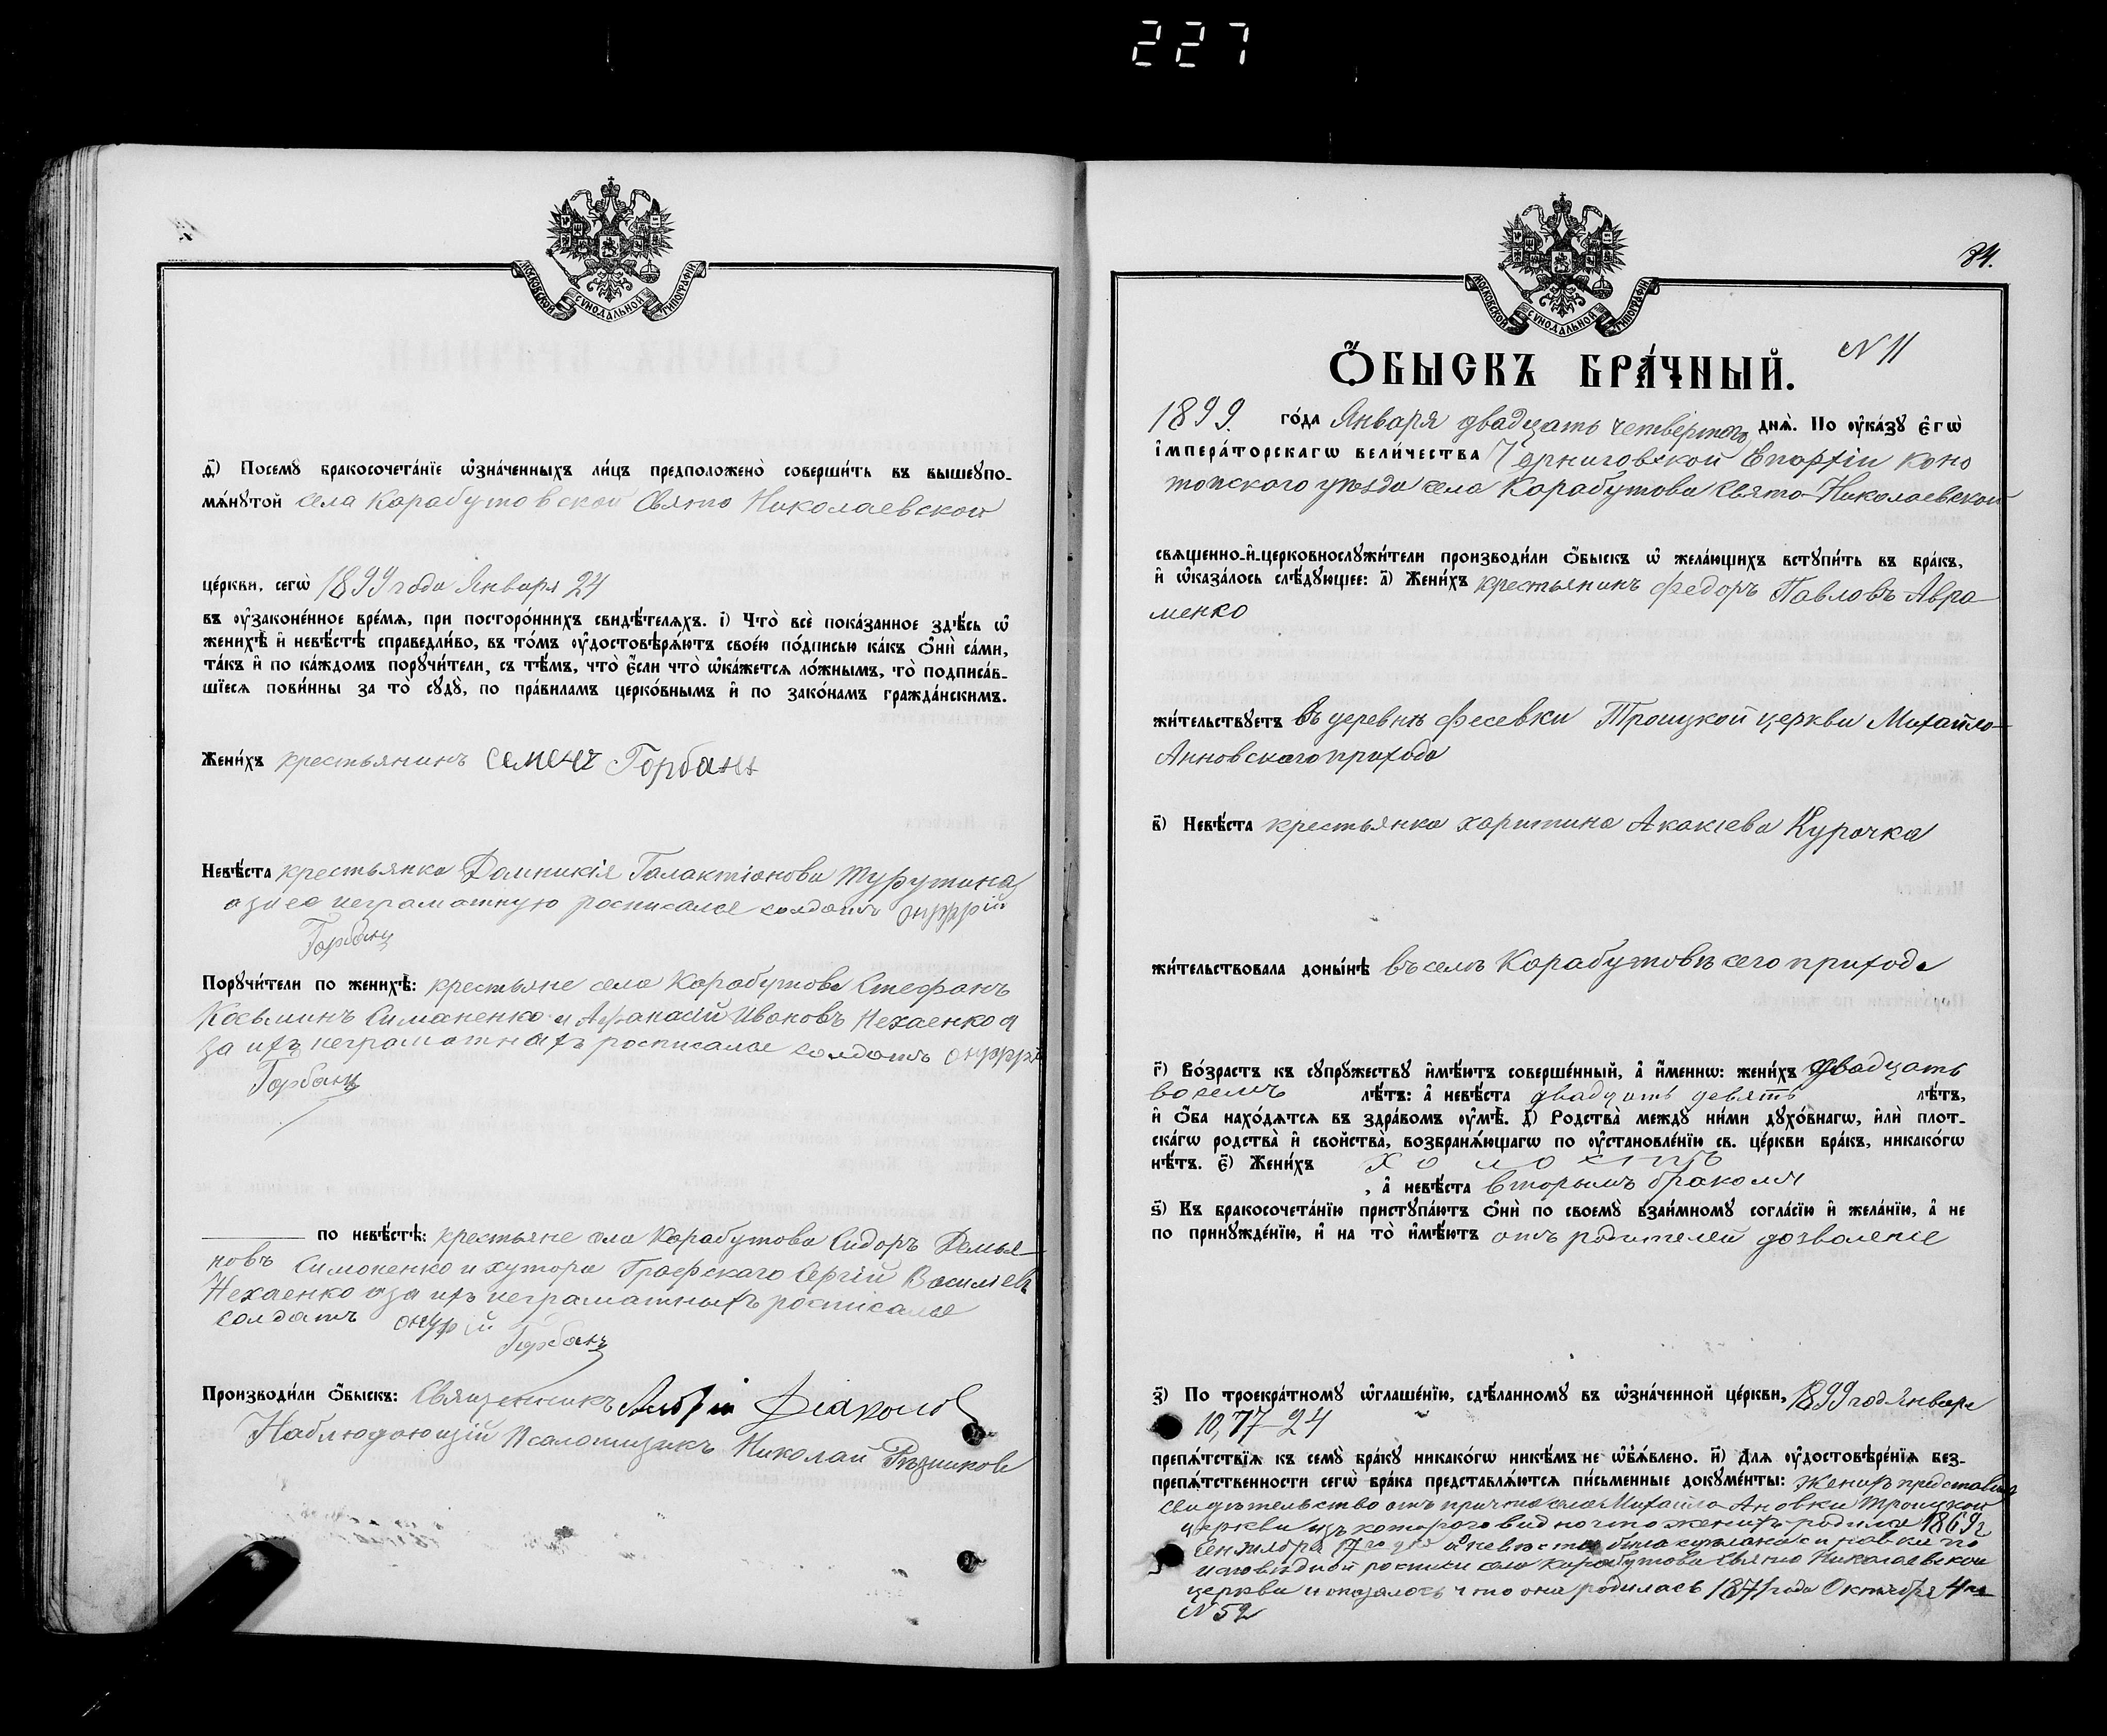 227
МОСКОВСКОЙ СѴНОДАЛЬНОЙ ТИПОГРАФІИ
ѳ҃) Посемꙋ бракосочета́нїе ѡ҆зна́ченныхъ ли́цъ предположено̀ соверши́ть въ вышеꙋпо-
мѧ́нꙋтой села Карабутовской Свято Николаевской
це́ркви, сегѡ̀ 1899 года Января 24
въ оу҆зако́не́нное вре́мѧ, при посторо́ннихъ свидѣ́телѧхъ. і҃) Что̀ всѐ пока́занное здѣ́сь ѡ҆
женихѣ̀ и҆ невѣ́стѣ справедли́во, въ то́мъ оу҆достовѣрѧ́ютъ свое́ю по́дписью ка́къ ѻ҆нѝ са́ми,
та́къ и҆ по ка́ждомъ порꙋчи́тели, съ тѣ́мъ, что̀ є҆́сли что̀ ѡ҆ка́жетсѧ ло́жнымъ, то̀ подписа́в-
шїесѧ пови́нны за то̀ сꙋдꙋ̀, по пра́виламъ церко́внымъ и҆ по зако́намъ гражда́нскимъ.
Жени́хъ крестьянинъ Семенъ Горбань
Невѣ́ста крестьянка Домникія Галактіонова Турутина
а за ее неграмотную росписался солдатъ Онуфрій
Горбань
Порꙋчи́тели по женихѣ̀: крестьяне села Карабутова Стефанъ
Косьминъ Симаненко и Афанасій Ивановъ Нехаенко а
за ихъ неграмотныхъ росписался солдатъ Онуфрій
Горбань
по невѣ́стѣ: крестьяне села Карабутова Сидоръ Демья-
новъ Симоненко и хутора Графскаго Сергій Васильевъ
Нехаенко а за ихъ неграматныхъ росписался
солдатъ Онуфрій
Горбань
Производи́ли ѻ҆́быскъ: Священникъ Діаконов
Наблюдающій Псаломщикъ Николай Резников
84.
МОСКОВСКОЙ СѴНОДАЛЬНОЙ ТИПОГРАФІИ
N 11
Ѻ҆́БЫСКЪ БРА́ЧНЫЙ.
1899. го́да Января двадцать четвертого днѧ̀. По оу҆ка́зꙋ є҆гѡ̀
і҆мпера́торскагѡ вели́чества Черниговской Епархіи Коно
топского уѣзда села Карабутова Свято-Николаевской
свѧщенно-и҆-церковнослꙋжи́тели производи́ли ѻ҆́быскъ ѡ҆ жела́ющихъ встꙋпи́ть въ бра́къ,
и҆ ѡ҆каза́лось слѣ́дꙋющее: а҃) Жени́хъ крестьянинъ Федоръ Павловъ Авра-
менко
жи́тельствꙋетъ въ деревнѣ Фесевки Троицкой церкви Михайло-
Анновскаго прихода
в҃) Невѣ́ста крестьянка Харитина Акакіева Курочка
жи́тельствовала доны́нѣ въ селѣ Карабутовѣ сего прихода
г҃) Во́зрастъ къ сꙋпрꙋ́жествꙋ и҆мѣ́ютъ соверше́нный, а҆ и҆́меннѡ: жени́хъ двадцать
восемъ лѣ́тъ: а҆ невѣ́ста двадцать девять лѣ́тъ,
и҆ ѻ҆́ба нахо́дѧтсѧ въ здра́вомъ оу҆мѣ̀. д҃) Родства̀ междꙋ ни́ми дꙋхо́внагѡ, и҆лѝ плот-
ска́гѡ родства̀ и҆ сво́йства̀, возбранѧ́ющагѡ по оу҆становле́нїю св. це́ркви бра́къ, никако́гѡ
нѣ́тъ. є҃) Жени́хъ холостъ
, а҆ невѣ́ста вторымъ бракомъ
ѕ҃) Къ бракосочета́нїю пристꙋпа́ютъ ѻ҆нѝ по своемꙋ̀ взаи́мномꙋ согла́сїю и҆ жела́нїю, а҆ не
по принꙋжде́нїю, и҆ на то̀ и҆мѣ́ютъ отъ родителей дозволеніе
з҃) По троекра́тномꙋ ѡ҆глаше́нїю, сдѣ́ланномꙋ въ ѡ҆зна́ченной це́ркви, 1899 год Января
10, 17-24
препѧ́тствїѧ къ семꙋ̀ бра́кꙋ никако́гѡ никѣ́мъ не ѡ҆б̾ѧ́влено. и҃) Длѧ оу҆достовѣре́нїѧ без-
препѧ́тственности сегѡ̀ бра́ка представлѧ́ютсѧ пи́сьменные докꙋме́нты: Женихъ представилъ
свидѣтельство отъ причта села Михайла Ановки Троицкой
церкви изъ которого видно что женихъ родился 1869 г
Сентября 17го дня а невѣста была справка по
исповѣдной росписи села Карабутова Свято Николаевской
церкви и оказалось что она родилась 1871 года Октября 4го
N 52